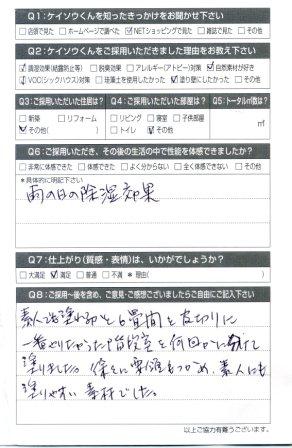 Q1:ケイソウくんを知ったきっかけをお聞かせ下さい
□店頭で見た □ホームページで調べた ☑NETショッピングで見た □雑誌で見た □その他
Q2:ケイソウくんをご採用いただきました理由をお教え下さい
☑調湿効果(結露防止等) □脱臭効果 □アレルギー(アトピー)対策 ☑自然素材が好き
☑VOC(シックハウス)対策 □珪藻土を使用したかった ☑塗り壁にしたかった □その他
Q3:ご採用いただいた住居は? Q4:ご採用いただいた部屋は? Q5:トータル㎡数は?
□新築 □リフォーム □リビング □寝室 □子供部屋 ㎡
☑その他( ) □トイレ ☑その他( )
Q6:ご採用いただき、その後の生活の中で性能を体感できましたか?
□非常に体感できた □体感できた □よく分からない □全く体感できない □その他
*具体的に明記下さい
雨の日の除湿効果
Q7:仕上がり(質感・表情)は、いかがでしょうか?
□大満足 ☑満足 □普通 □不満 *理由( )
Q8:ご採用へ後を含め、ご意見・ご感想ございましたらご自由にご記入下さい
6畳間を皮切りに
一番やりたかった階段室を何日かに分けて
塗りました。徐々に要領もつかめ、素人にも
塗りやすい素材でした。
以上ご協力有難うございます。